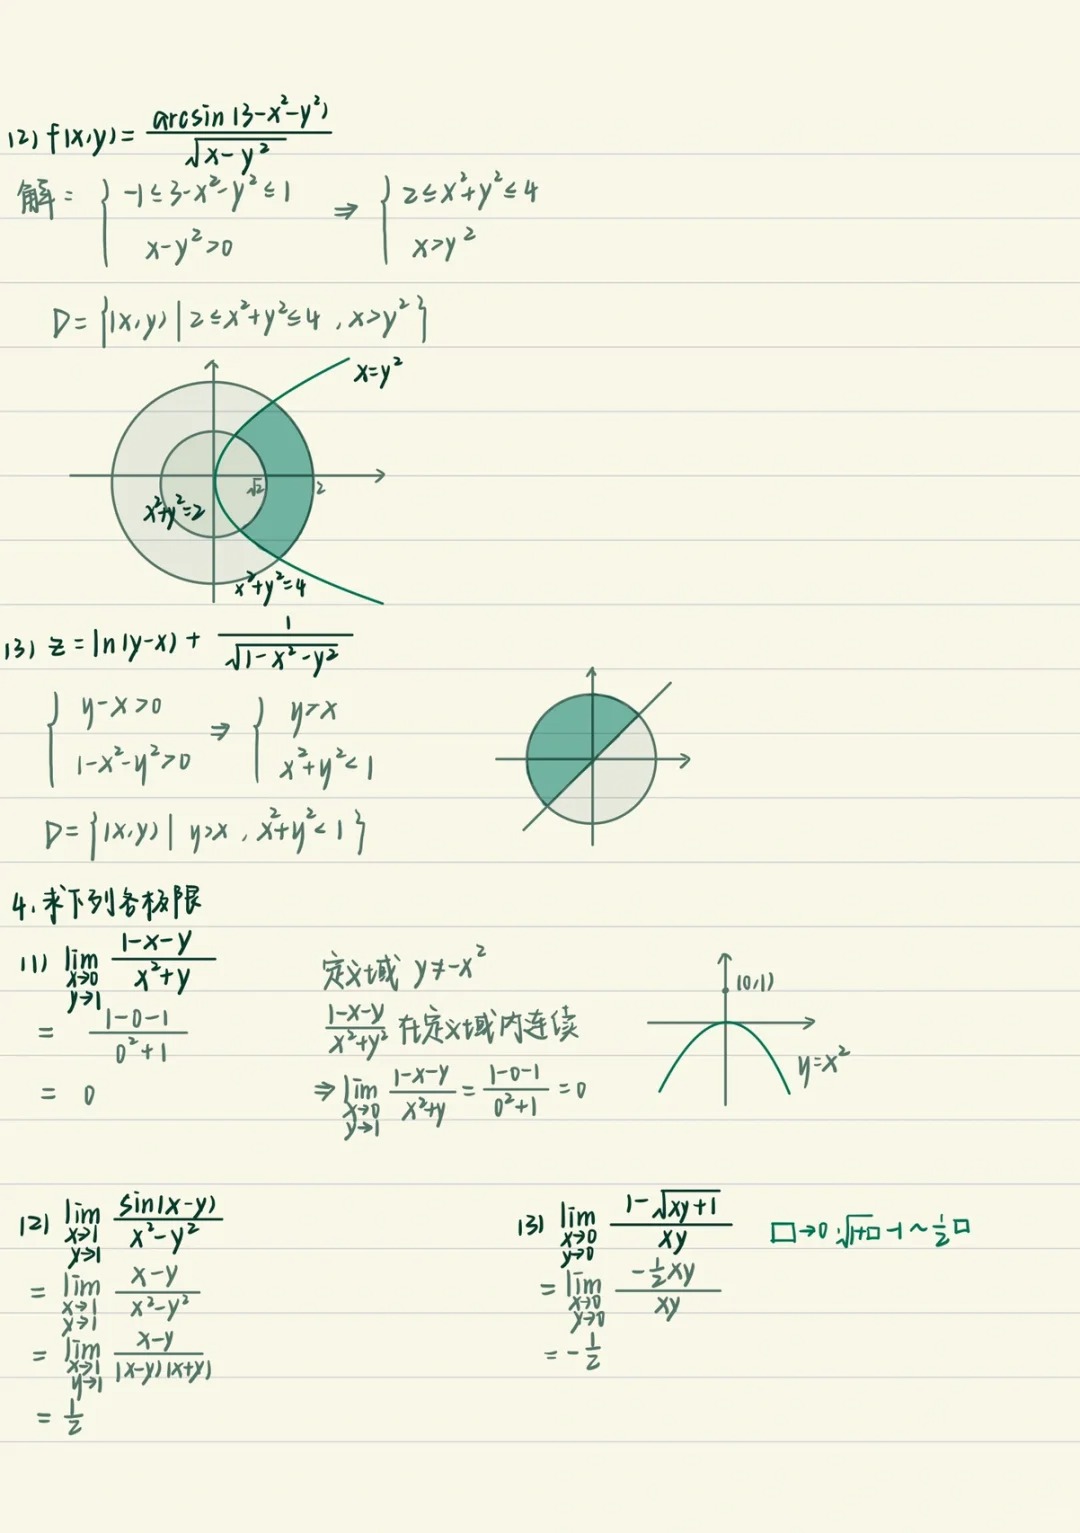 (2) f(x,y) = arcsin(3-x²-y²) / √(x-y²)
解: { -1≤3-x²-y²≤1 ⇒ { 2≤x²+y²≤4
x-y²>0 x>y²
D = {(x,y) | 2≤x²+y²≤4, x>y²}
x=y²
√2 2
x²+y²=2
x²+y²=4
(3) z = ln(y-x) + 1/√(1-x²-y²)
{ y-x>0 ⇒ { y>x
1-x²-y²>0 x²+y²<1
D = {(x,y) | y>x, x²+y²<1}
4.求下列各极限
(1) lim x→0 y→1 (1-x-y)/(x²+y)
= (1-0-1)/(0²+1)
= 0
定义域 y≠-x²
(1-x-y)/(x²+y²) 在定义域内连续
⇒ lim x→0 y→1 (1-x-y)/(x²+y) = (1-0-1)/(0²+1) = 0
(0,1)
y=x²
(2) lim x→1 y→1 sin(x-y)/(x²-y²)
= lim x→1 y→1 (x-y)/(x²-y²)
= lim x→1 y→1 (x-y)/((x-y)(x+y))
= 1/2
(3) lim x→0 y→0 (1-√(xy+1))/(xy) □→0 √(1+□) -1 ~ 1/2 □
= lim x→0 y→0 (-1/2 xy)/(xy)
= -1/2